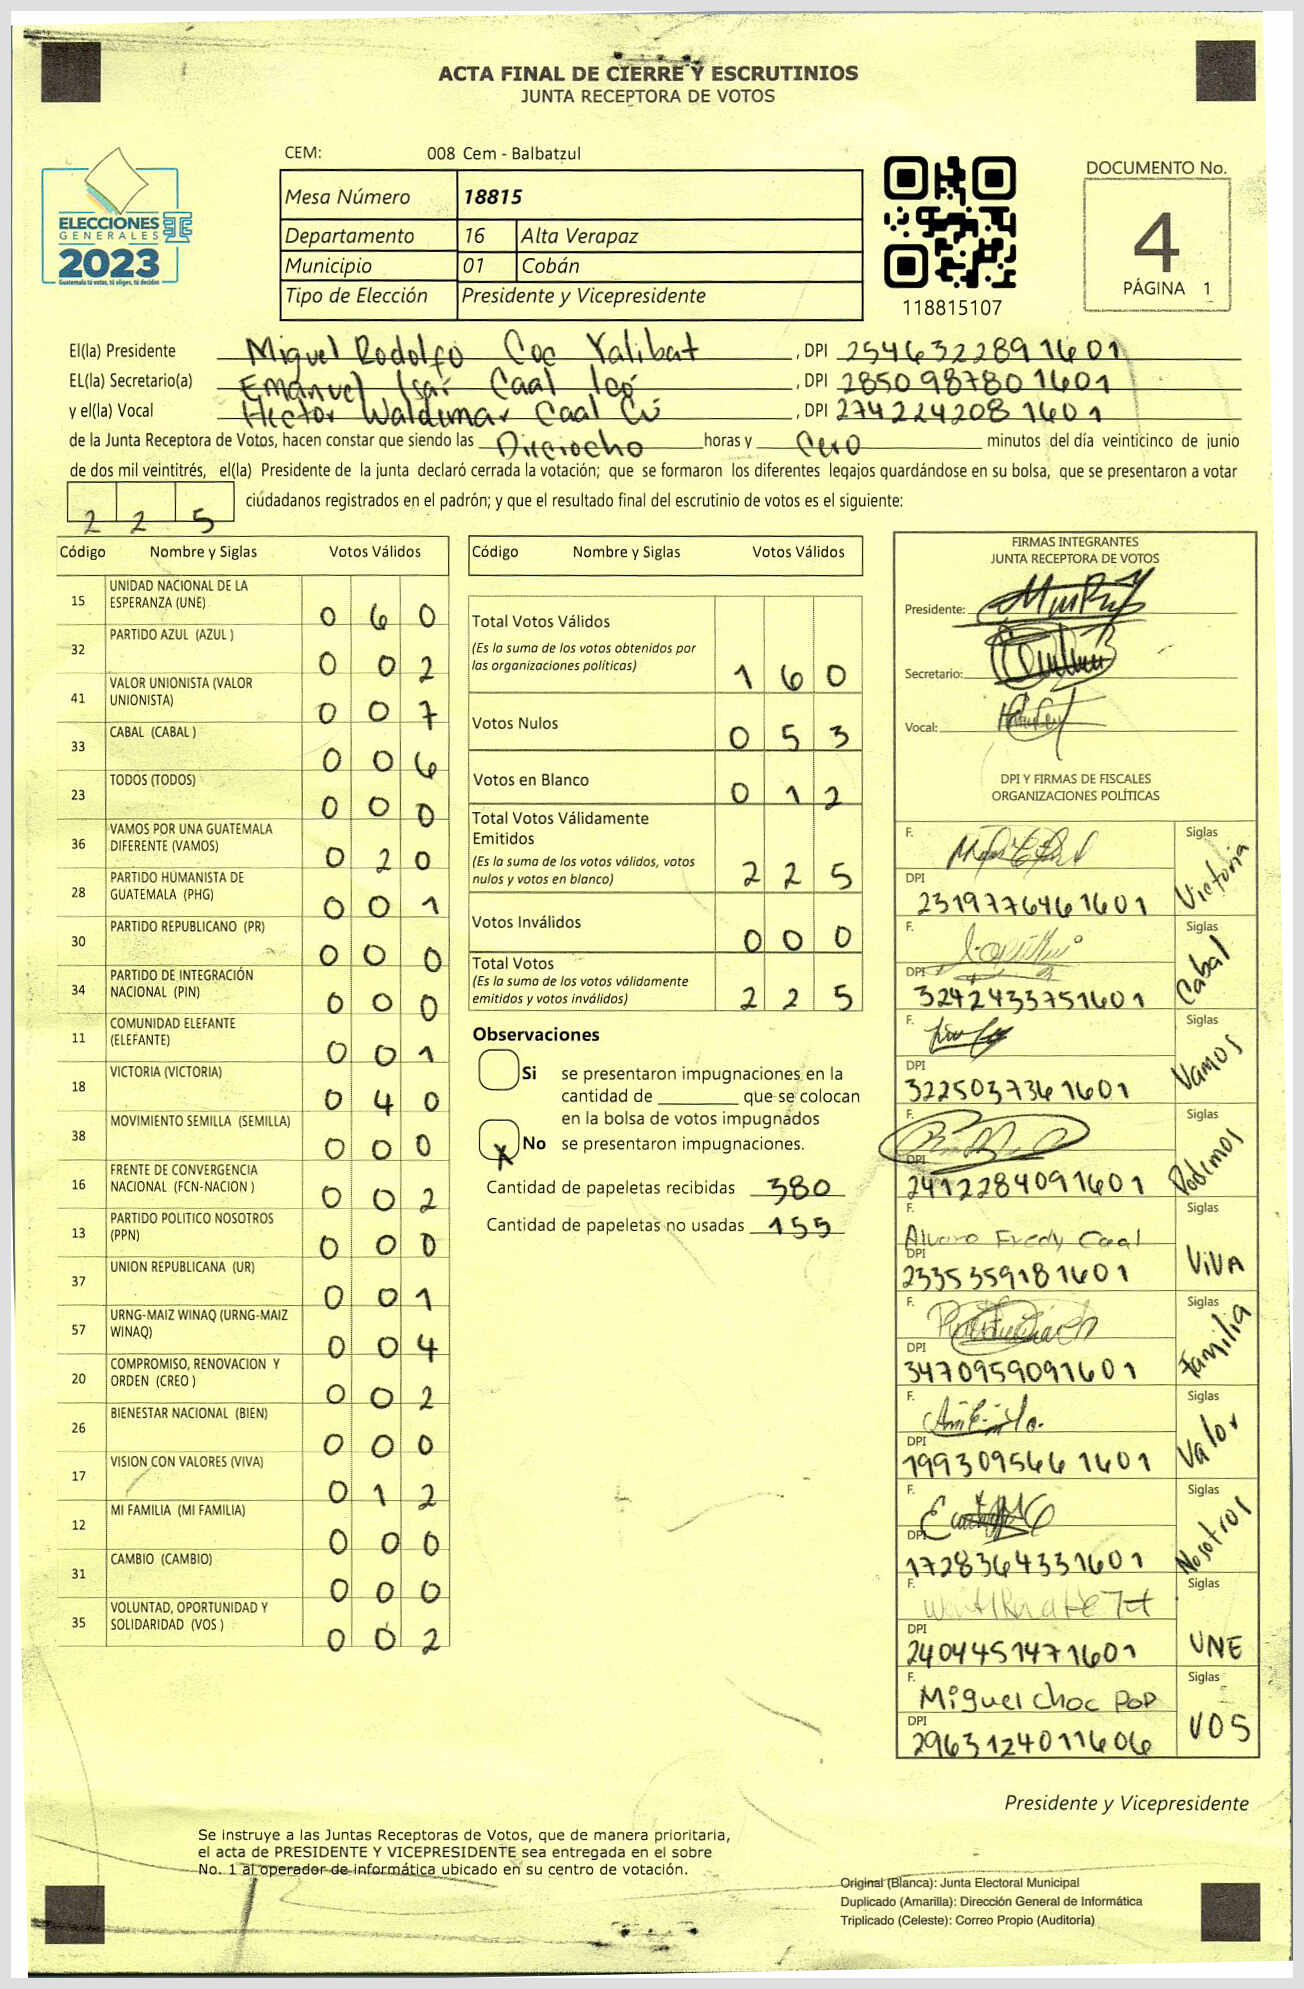 ACTA FINAL DE CIERRE Y ESCRUTINIOS
JUNTA RECEPTORA DE VOTOS
CEM: 008 Cem - Balbatzul
ELECCIONES
GENERALES
2023
Guatemala tú votas, tú eliges, tú decides
Mesa Número 18815
Departamento 16 Alta Verapaz
Municipio 01 Cobán
Tipo de Elección Presidente y Vicepresidente
118815107
DOCUMENTO No.
4
PÁGINA 1
El(la) Presidente Miguel Rodolfo Coc Yalibat , DPI 2546322891601
EL(la) Secretario(a) Emanuel Isaí Caal Icó , DPI 2850987801601
y el(la) Vocal Hector Waldimar Caal Cú , DPI 2742242081601
de la Junta Receptora de Votos, hacen constar que siendo las Dieciocho horas y Cero minutos del día veinticinco de junio
de dos mil veintitrés, el(la) Presidente de la junta declaró cerrada la votación; que se formaron los diferentes legajos quardándose en su bolsa, que se presentaron a votar
225 ciudadanos registrados en el padrón; y que el resultado final del escrutinio de votos es el siguiente:
Código Nombre y Siglas Votos Válidos
15 UNIDAD NACIONAL DE LA ESPERANZA (UNE) 0 6 0
32 PARTIDO AZUL (AZUL ) 0 0 2
41 VALOR UNIONISTA (VALOR UNIONISTA) 0 0 7
33 CABAL (CABAL ) 0 0 6
23 TODOS (TODOS) 0 0 0
36 VAMOS POR UNA GUATEMALA DIFERENTE (VAMOS) 0 2 0
28 PARTIDO HUMANISTA DE GUATEMALA (PHG) 0 0 1
30 PARTIDO REPUBLICANO (PR) 0 0 0
34 PARTIDO DE INTEGRACIÓN NACIONAL (PIN) 0 0 0
11 COMUNIDAD ELEFANTE (ELEFANTE) 0 0 1
18 VICTORIA (VICTORIA) 0 4 0
38 MOVIMIENTO SEMILLA (SEMILLA) 0 0 0
16 FRENTE DE CONVERGENCIA NACIONAL (FCN-NACION ) 0 0 2
13 PARTIDO POLITICO NOSOTROS (PPN) 0 0 0
37 UNION REPUBLICANA (UR) 0 0 1
57 URNG-MAIZ WINAQ (URNG-MAIZ WINAQ) 0 0 4
20 COMPROMISO, RENOVACION Y ORDEN (CREO ) 0 0 2
26 BIENESTAR NACIONAL (BIEN) 0 0 0
17 VISION CON VALORES (VIVA) 0 1 2
12 MI FAMILIA (MI FAMILIA) 0 0 0
31 CAMBIO (CAMBIO) 0 0 0
35 VOLUNTAD, OPORTUNIDAD Y SOLIDARIDAD (VOS ) 0 0 2
Código Nombre y Siglas Votos Válidos
Total Votos Válidos 1 6 0
(Es la suma de los votos obtenidos por
las organizaciones políticas)
Votos Nulos 0 5 3
Votos en Blanco 0 1 2
Total Votos Válidamente
Emitidos
(Es la suma de los votos válidos, votos
nulos y votos en blanco) 2 2 5
Votos Inválidos 0 0 0
Total Votos
(Es la suma de los votos válidamente
emitidos y votos inválidos) 2 2 5
Observaciones
Si se presentaron impugnaciones en la
cantidad de ________ que se colocan
en la bolsa de votos impugnados
X No se presentaron impugnaciones.
Cantidad de papeletas recibidas 380
Cantidad de papeletas no usadas 155
FIRMAS INTEGRANTES
JUNTA RECEPTORA DE VOTOS
Presidente:
Secretario:
Vocal:
DPI Y FIRMAS DE FISCALES
ORGANIZACIONES POLÍTICAS
F. Siglas
DPI 2319776461601 Victoria
F. Siglas
DPI 3242433751601 Cabal
F. Siglas
DPI 3225037361601 Vamos
F. Siglas
DPI 2412284091601 Podemos
F. Alvaro Fredy Caal Siglas
DPI 2335359181601 ViVA
F. Siglas
DPI 3470959091601 Familia
F. Siglas
DPI 1993095661601 Valor
F. Siglas
DPI 1728364331601 Nosotros
F. Siglas
DPI 2404451471601 UNE
F. Miguel Choc Pop Siglas
DPI 2963124011606 VOS
Presidente y Vicepresidente
Se instruye a las Juntas Receptoras de Votos, que de manera prioritaria,
el acta de PRESIDENTE Y VICEPRESIDENTE sea entregada en el sobre
No. 1 al operador de informática ubicado en su centro de votación.
Original (Blanca): Junta Electoral Municipal
Duplicado (Amarilla): Dirección General de Informática
Triplicado (Celeste): Correo Propio (Auditoría)